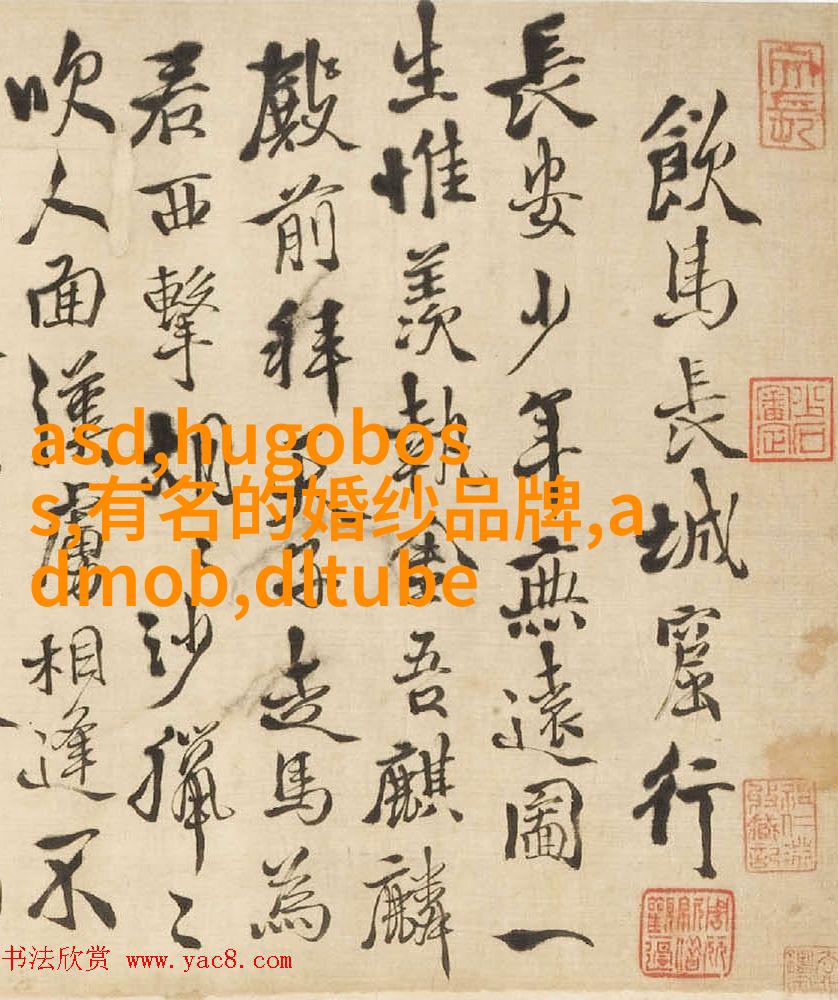 飲馬長城窟行
長安少年無遠圖一
生惟羨執金吾麒麟
殿前拜天子走馬為
君西擊胡〻沙獵〻
吹人面漢虜相逢不
asd,hugobos
s,有名的婚纱品牌,a
dmob,dltube
书法欣赏 www.yac8.com